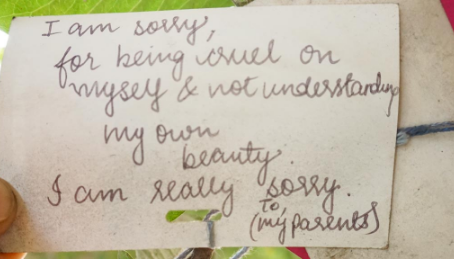 I am sorry,
for being cruel on
myself & not understanding
my own
beauty.
I am really sorry.
to
(my parents)